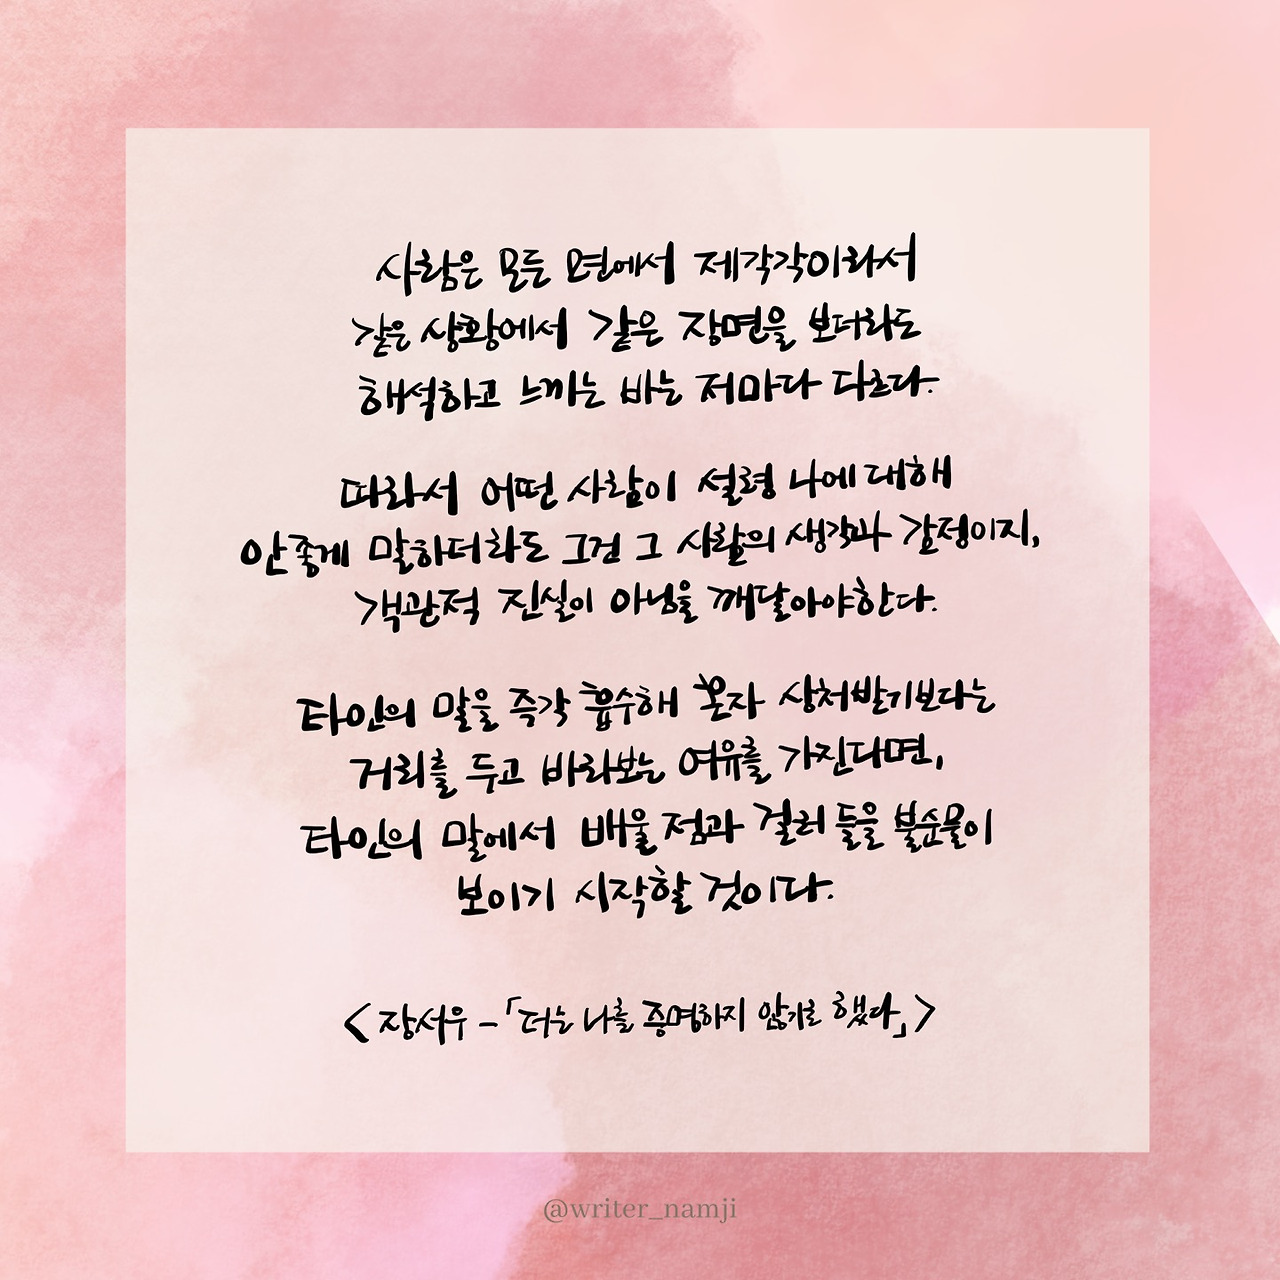 사람은 모든 면에서 제각각이라서
같은 상황에서 같은 장면을 보더라도
해석하고 느끼는 바는 저마다 다르다.
따라서 어떤 사람이 설령 나에 대해
안좋게 말하더라도 그건 그 사람의 생각과 감정이지,
객관적 진실이 아님을 깨달아야한다.
타인의 말을 즉각 흡수해 혼자 상처받기보다는
거리를 두고 바라보는 여유를 가진다면,
타인의 말에서 배울 점과 걸러 들을 불순물이
보이기 시작할 것이다.
<장서우 -「더는 나를 증명하지 않기로 했다」>
@writer_namji